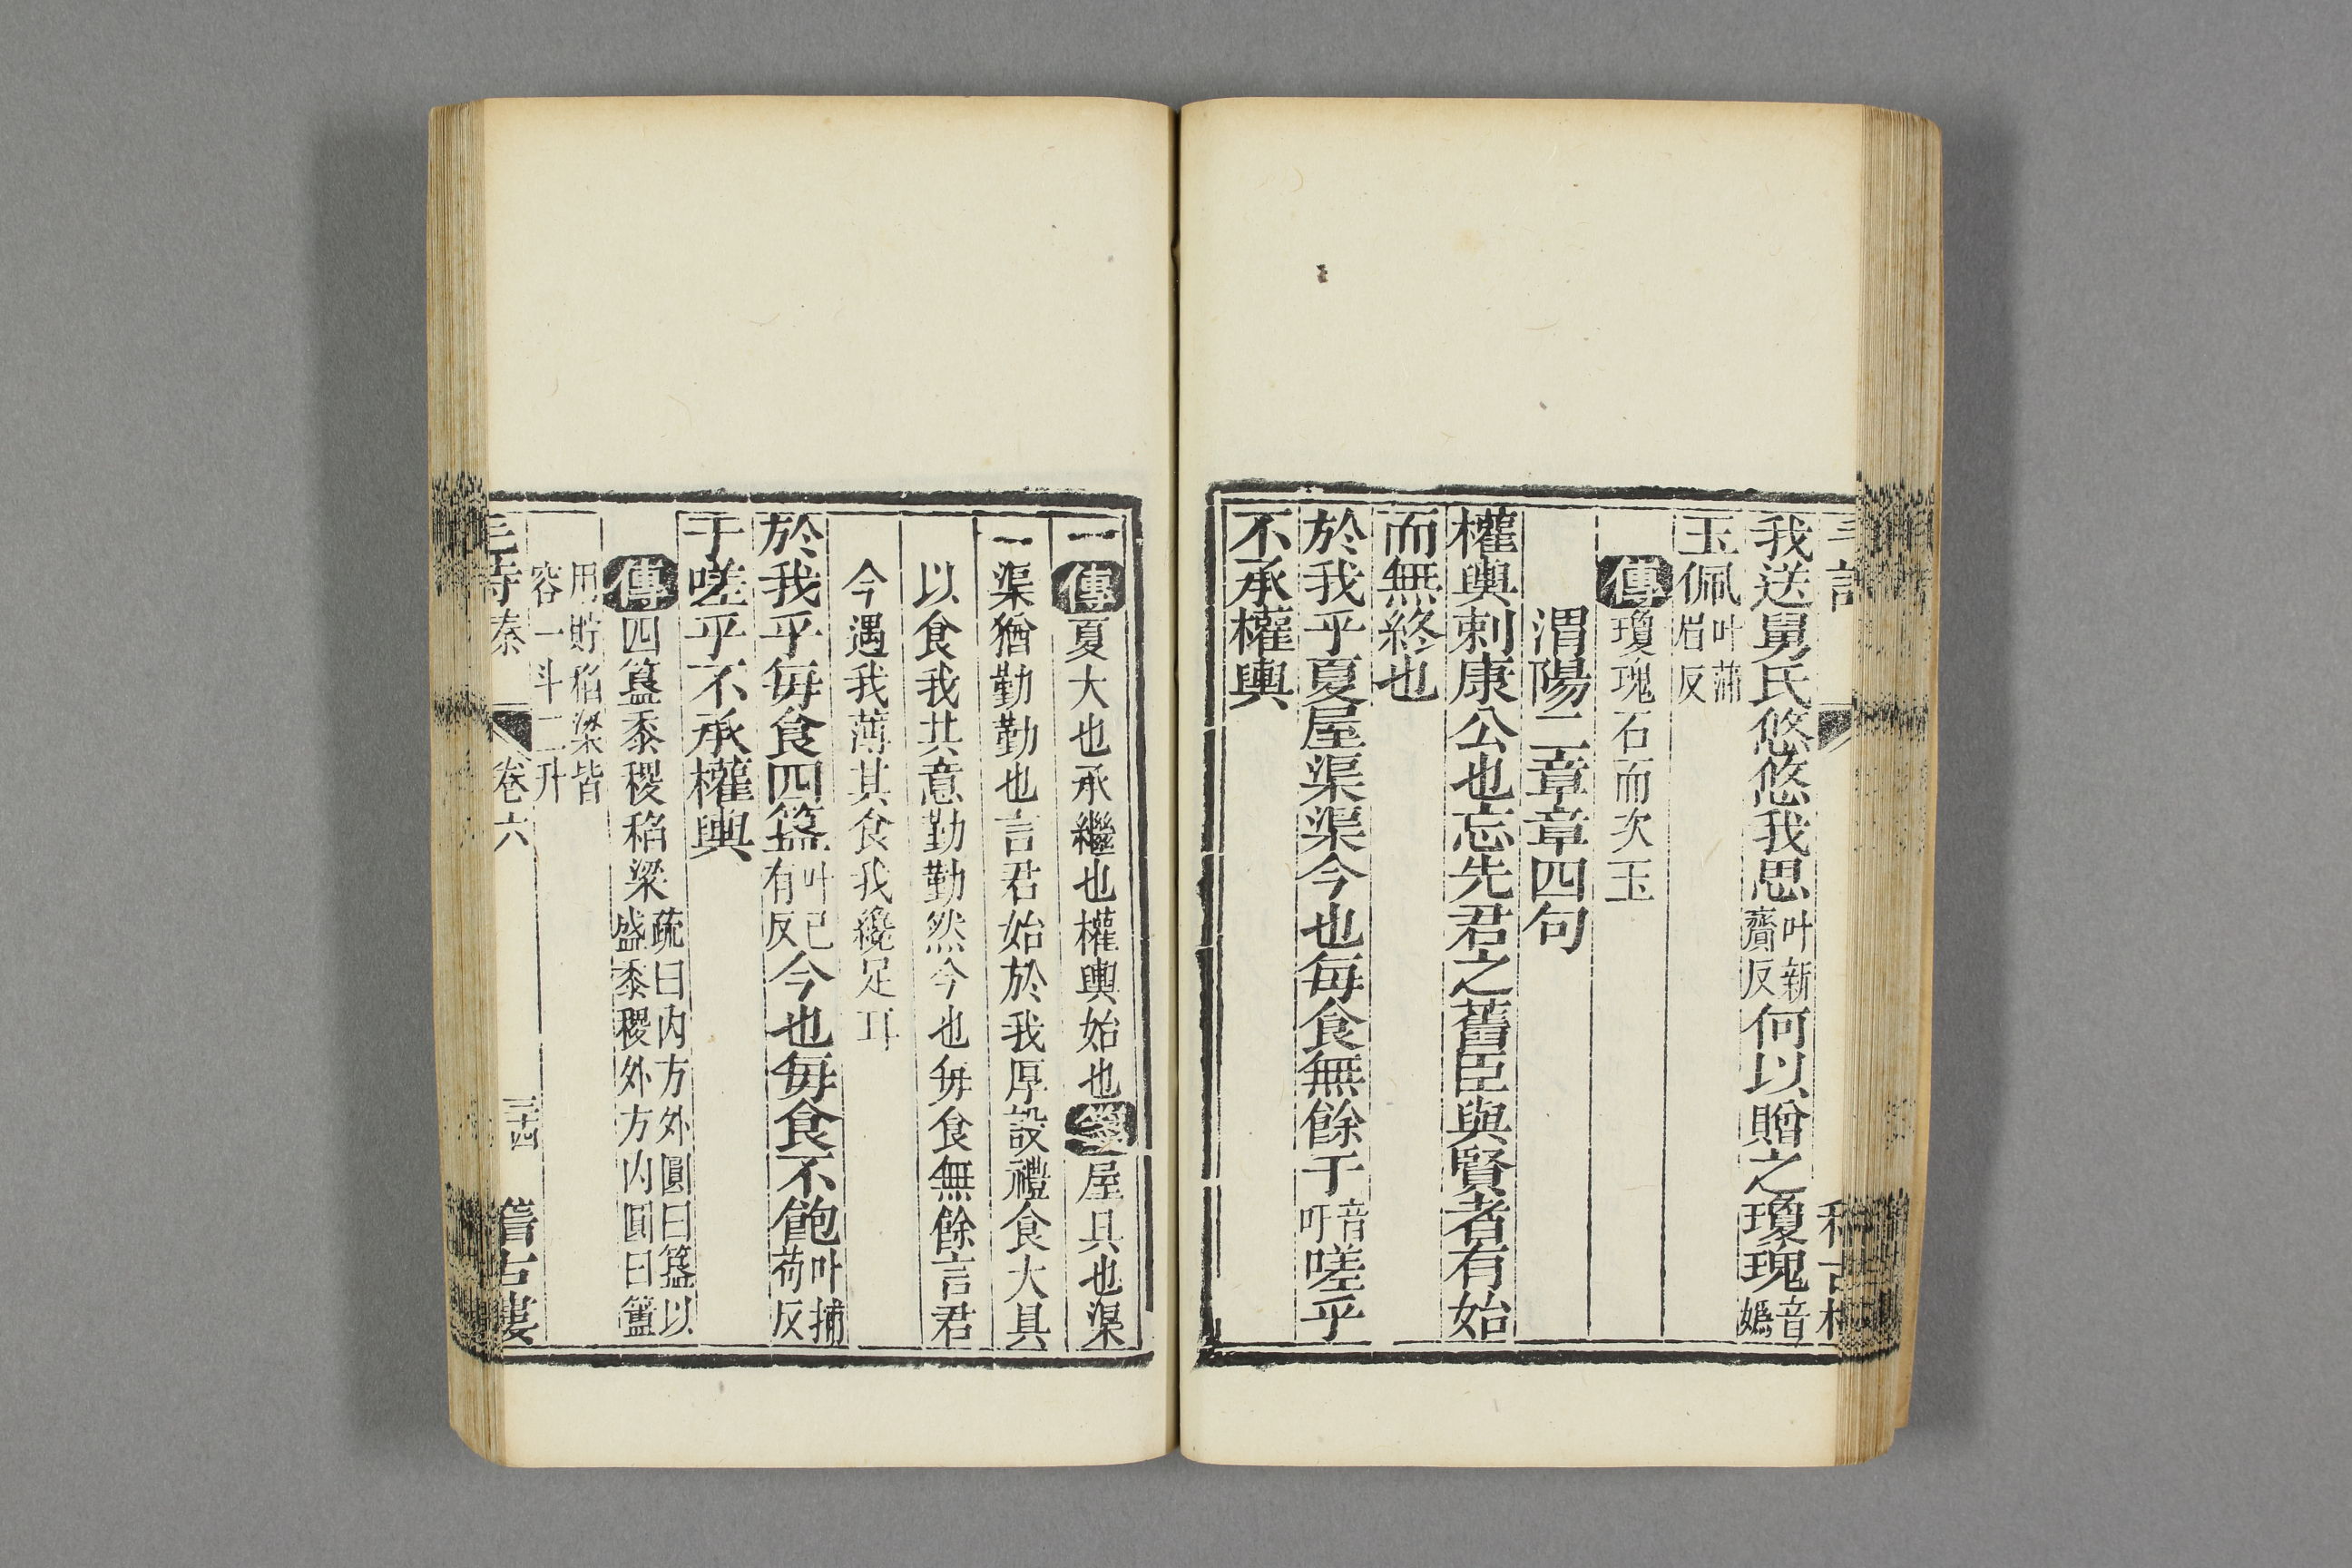 我送舅氏悠悠我思叶新齎反何以贈之瓊瑰音嬀
玉佩叶蒲眉反
傳瓊瑰石而次玉
渭陽二章章四句
權輿刺康公也忘先君之舊臣與賢者有始
而無終也
於我乎夏屋渠渠今也每食無餘于音吁嗟乎
不承權輿
傳夏大也承繼也權輿始也箋屋具也渠
渠猶勤勤也言君始於我厚設禮食大具
以食我其意勤勤然今也每食無餘言君
今遇我薄其食我纔足耳
於我乎每食四簋叶已有反今也每食不飽叶捕苟反
于嗟乎不承權輿
傳四簋黍稷稻粱疏曰内方外圓曰簋以盛黍稷外方内圓曰簠
用貯稻粱皆容一斗二升
毛詩秦 卷六 三十四 稽古樓